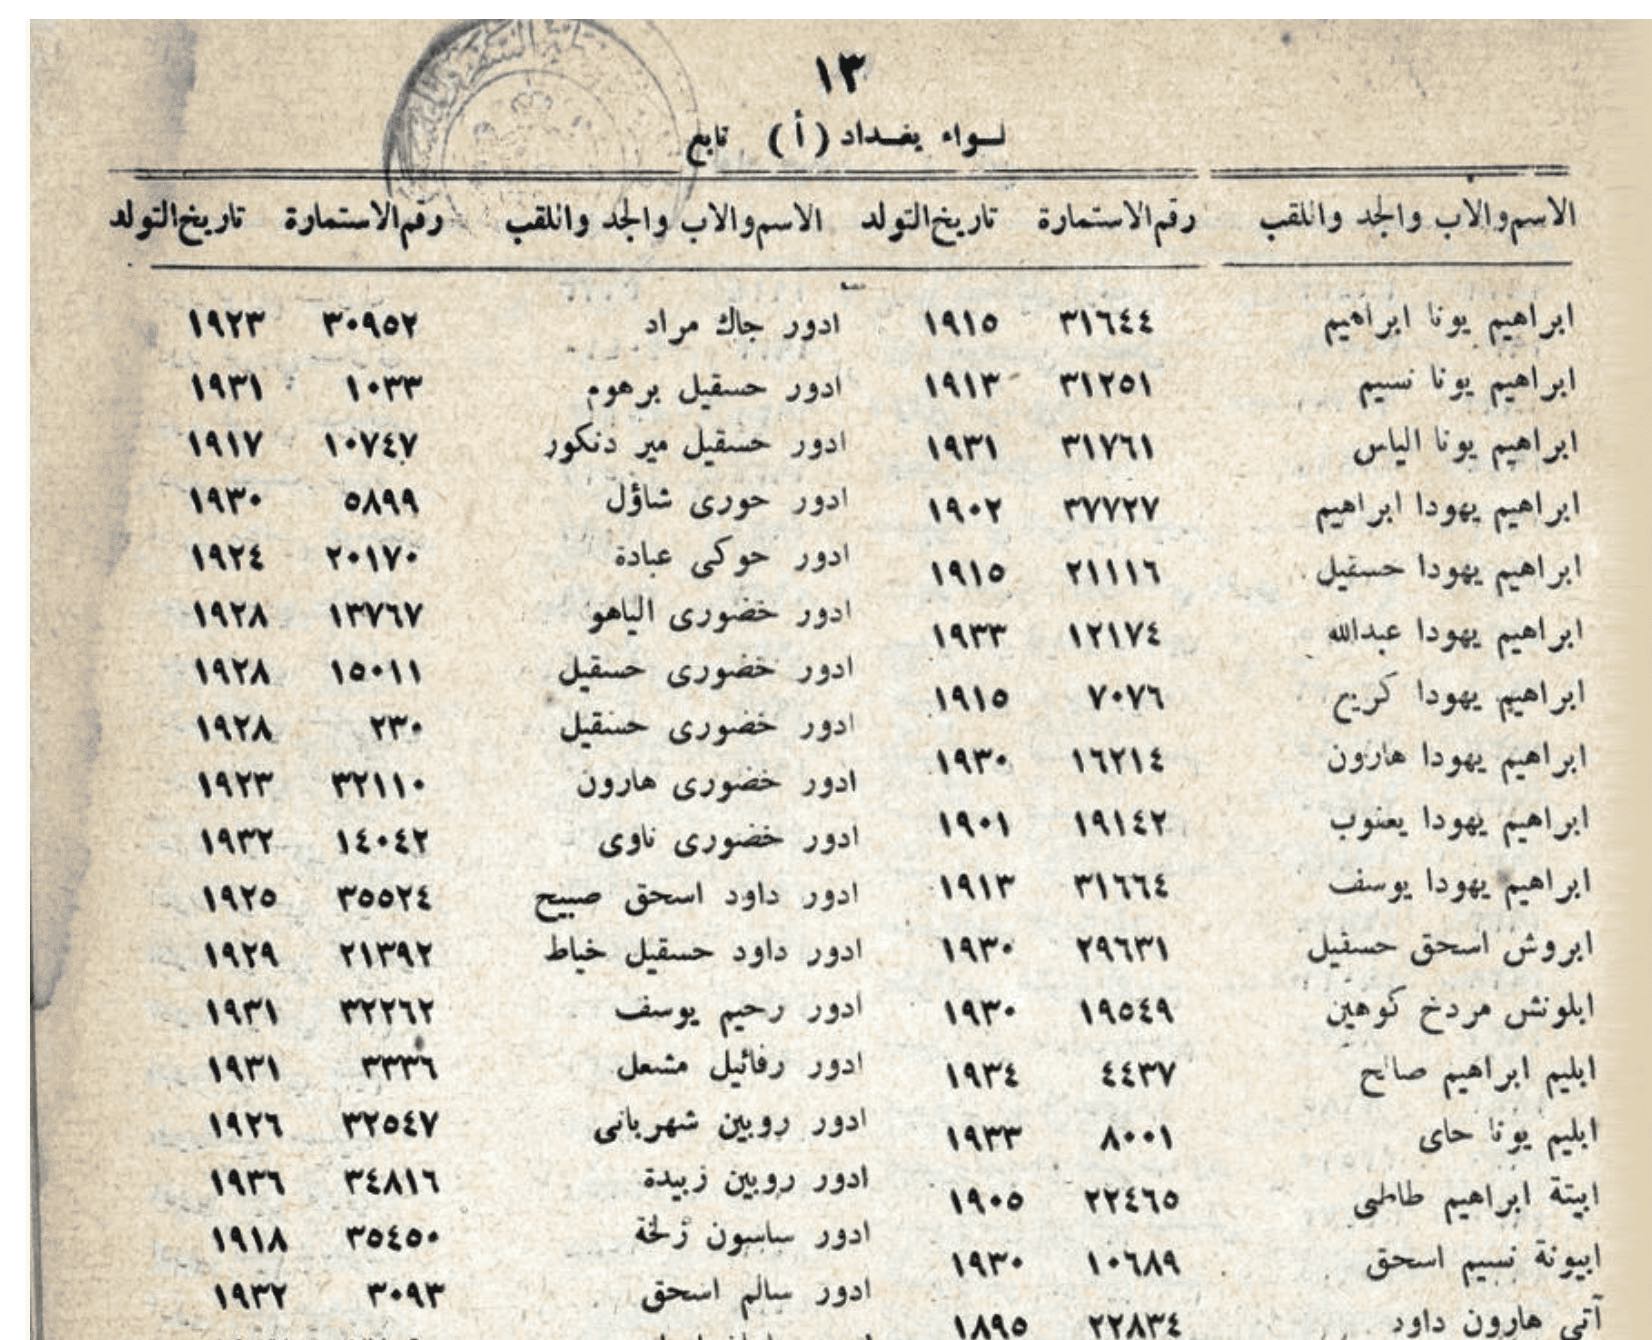 ١٣
لواء بغداد (أ) تابع
الاسم والاب والجد واللقب رقم الاستمارة تاريخ التولد الاسم والاب والجد واللقب رقم الاستمارة تاريخ التولد
ابراهيم يونا ابراهيم ٣١٦٤٤ ١٩١٥ ادور جاك مراد ٣٠٩٥٢ ١٩٢٣
ابراهيم يونا نسيم ٣١٢٥١ ١٩١٣ ادور حسقيل برهوم ١٠٣٣ ١٩٣١
ابراهيم يونا الياس ٣١٧٦١ ١٩٣١ ادور حسقيل مير دنكور ١٠٧٤٧ ١٩١٧
ابراهيم يهودا ابراهيم ٣٧٧٢٧ ١٩٠٢ ادور حورى شاؤل ٥٨٩٩ ١٩٣٠
ابراهيم يهودا حسقيل ٢١١١٦ ١٩١٥ ادور حوكى عبادة ٢٠١٧٠ ١٩٢٤
ابراهيم يهودا عبدالله ١٢١٧٤ ١٩٣٣ ادور خضورى الياهو ١٣٧٦٧ ١٩٢٨
ابراهيم يهودا كريح ٧٠٧٦ ١٩١٥ ادور خضورى حسقيل ١٥٠١١ ١٩٢٨
ابراهيم يهودا هارون ١٦٢١٤ ١٩٣٠ ادور خضورى حسقيل ٢٣٠ ١٩٢٨
ابراهيم يهودا يعقوب ١٩١٤٢ ١٩٠١ ادور خضورى هارون ٣٢١١٠ ١٩٢٣
ابراهيم يهودا يوسف ٣١٦٦٤ ١٩١٣ ادور خضورى ناوى ١٤٠٤٢ ١٩٣٢
ابروش اسحق حسقيل ٢٩٦٣١ ١٩٣٠ ادور داود اسحق صبيح ٣٥٥٢٤ ١٩٢٥
ابلونش مردخ كوهين ١٩٥٤٩ ١٩٣٠ ادور داود حسقيل خياط ٢١٣٩٢ ١٩٢٩
ابليم ابراهيم صالح ٤٤٣٧ ١٩٣٤ ادور رحيم يوسف ٣٢٢٦٢ ١٩٣١
ابليم يونا حاى ٨٠٠١ ١٩٣٣ ادور رفائيل مشعل ٣٣٣٦ ١٩٣١
ابيتة ابراهيم طاطى ٢٢٤٦٥ ١٩٠٥ ادور روبين شهربانى ٣٢٥٤٧ ١٩٢٦
ابيونة نسيم اسحق ١٠٦٨٩ ١٩٣٠ ادور روبين زبيدة ٣٤٨١٦ ١٩٣٦
آتى هارون داود ٢٢٨٣٤ ١٨٩٥ ادور ساسون زلخة ٣٥٤٥٠ ١٩١٨
ادور سالم اسحق ٣٠٩٣ ١٩٣٢